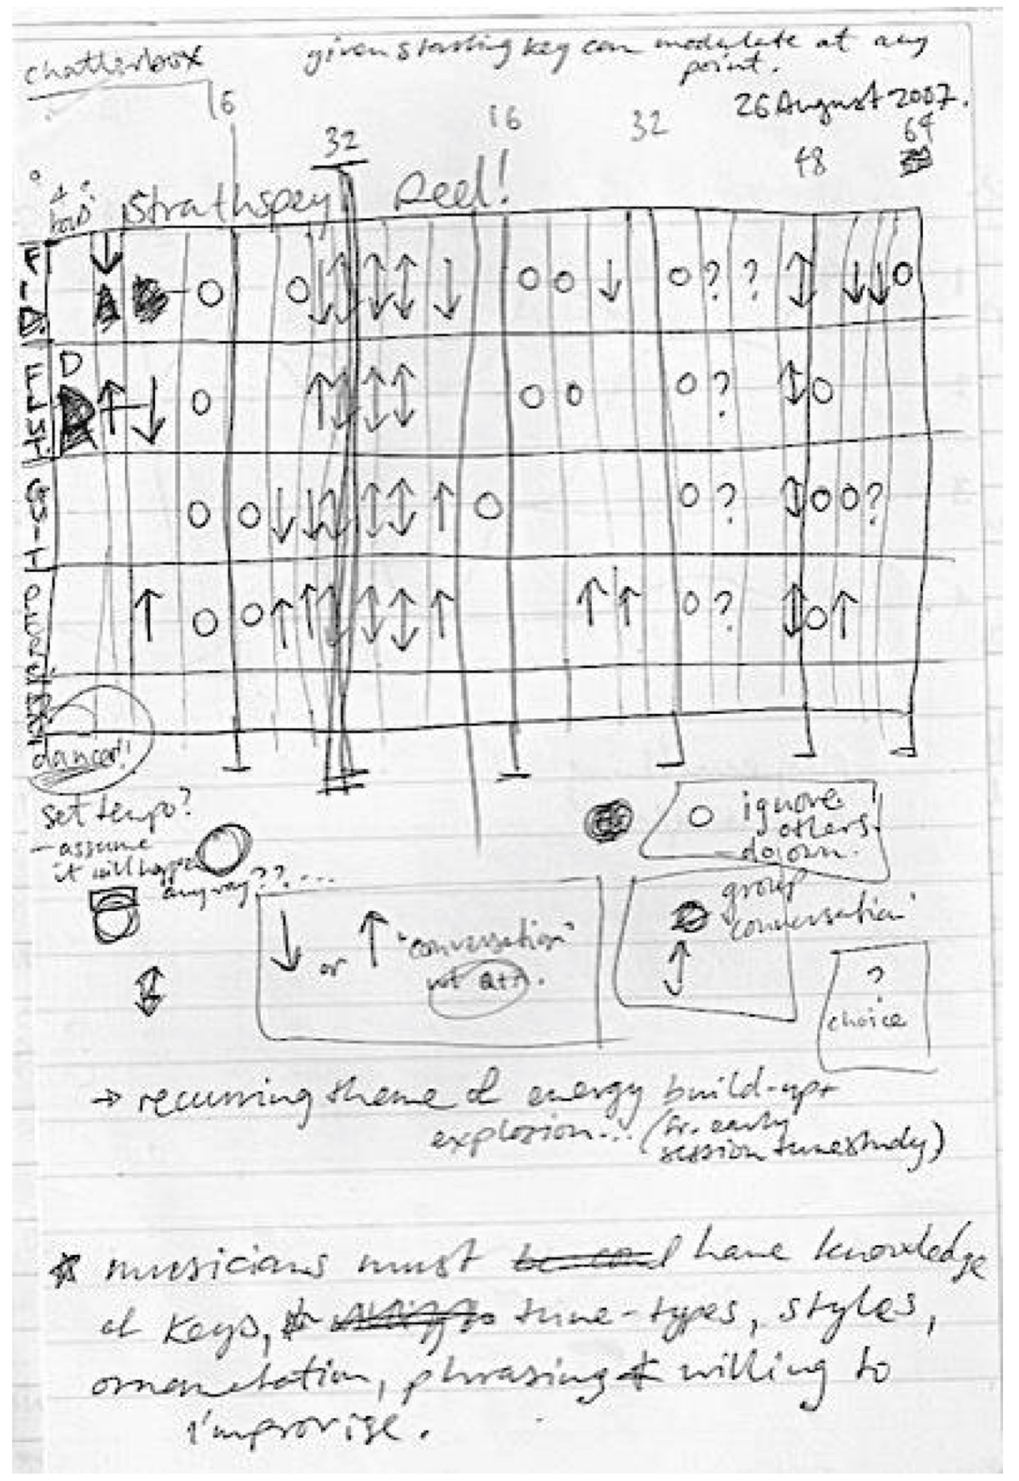 chatterbox
given starting key can modulate at any
point.
26 August 2007.
16
32
16
32
48
64
Strathspey
Reel!
D
? ?
?
?
?
?
dancer!!
set tempo?
- assume
it will happen
anyway??....
O ignore
others.
do own.
↓ or ↑ "conversation"
not att.
group
"conversation"
?
choice
→ recurring theme of energy build-up +
explosion... (
early
session tune study)
* musicians must have knowledge
of keys, tune-types, styles,
ornamentation, phrasing + willing to
improvise.